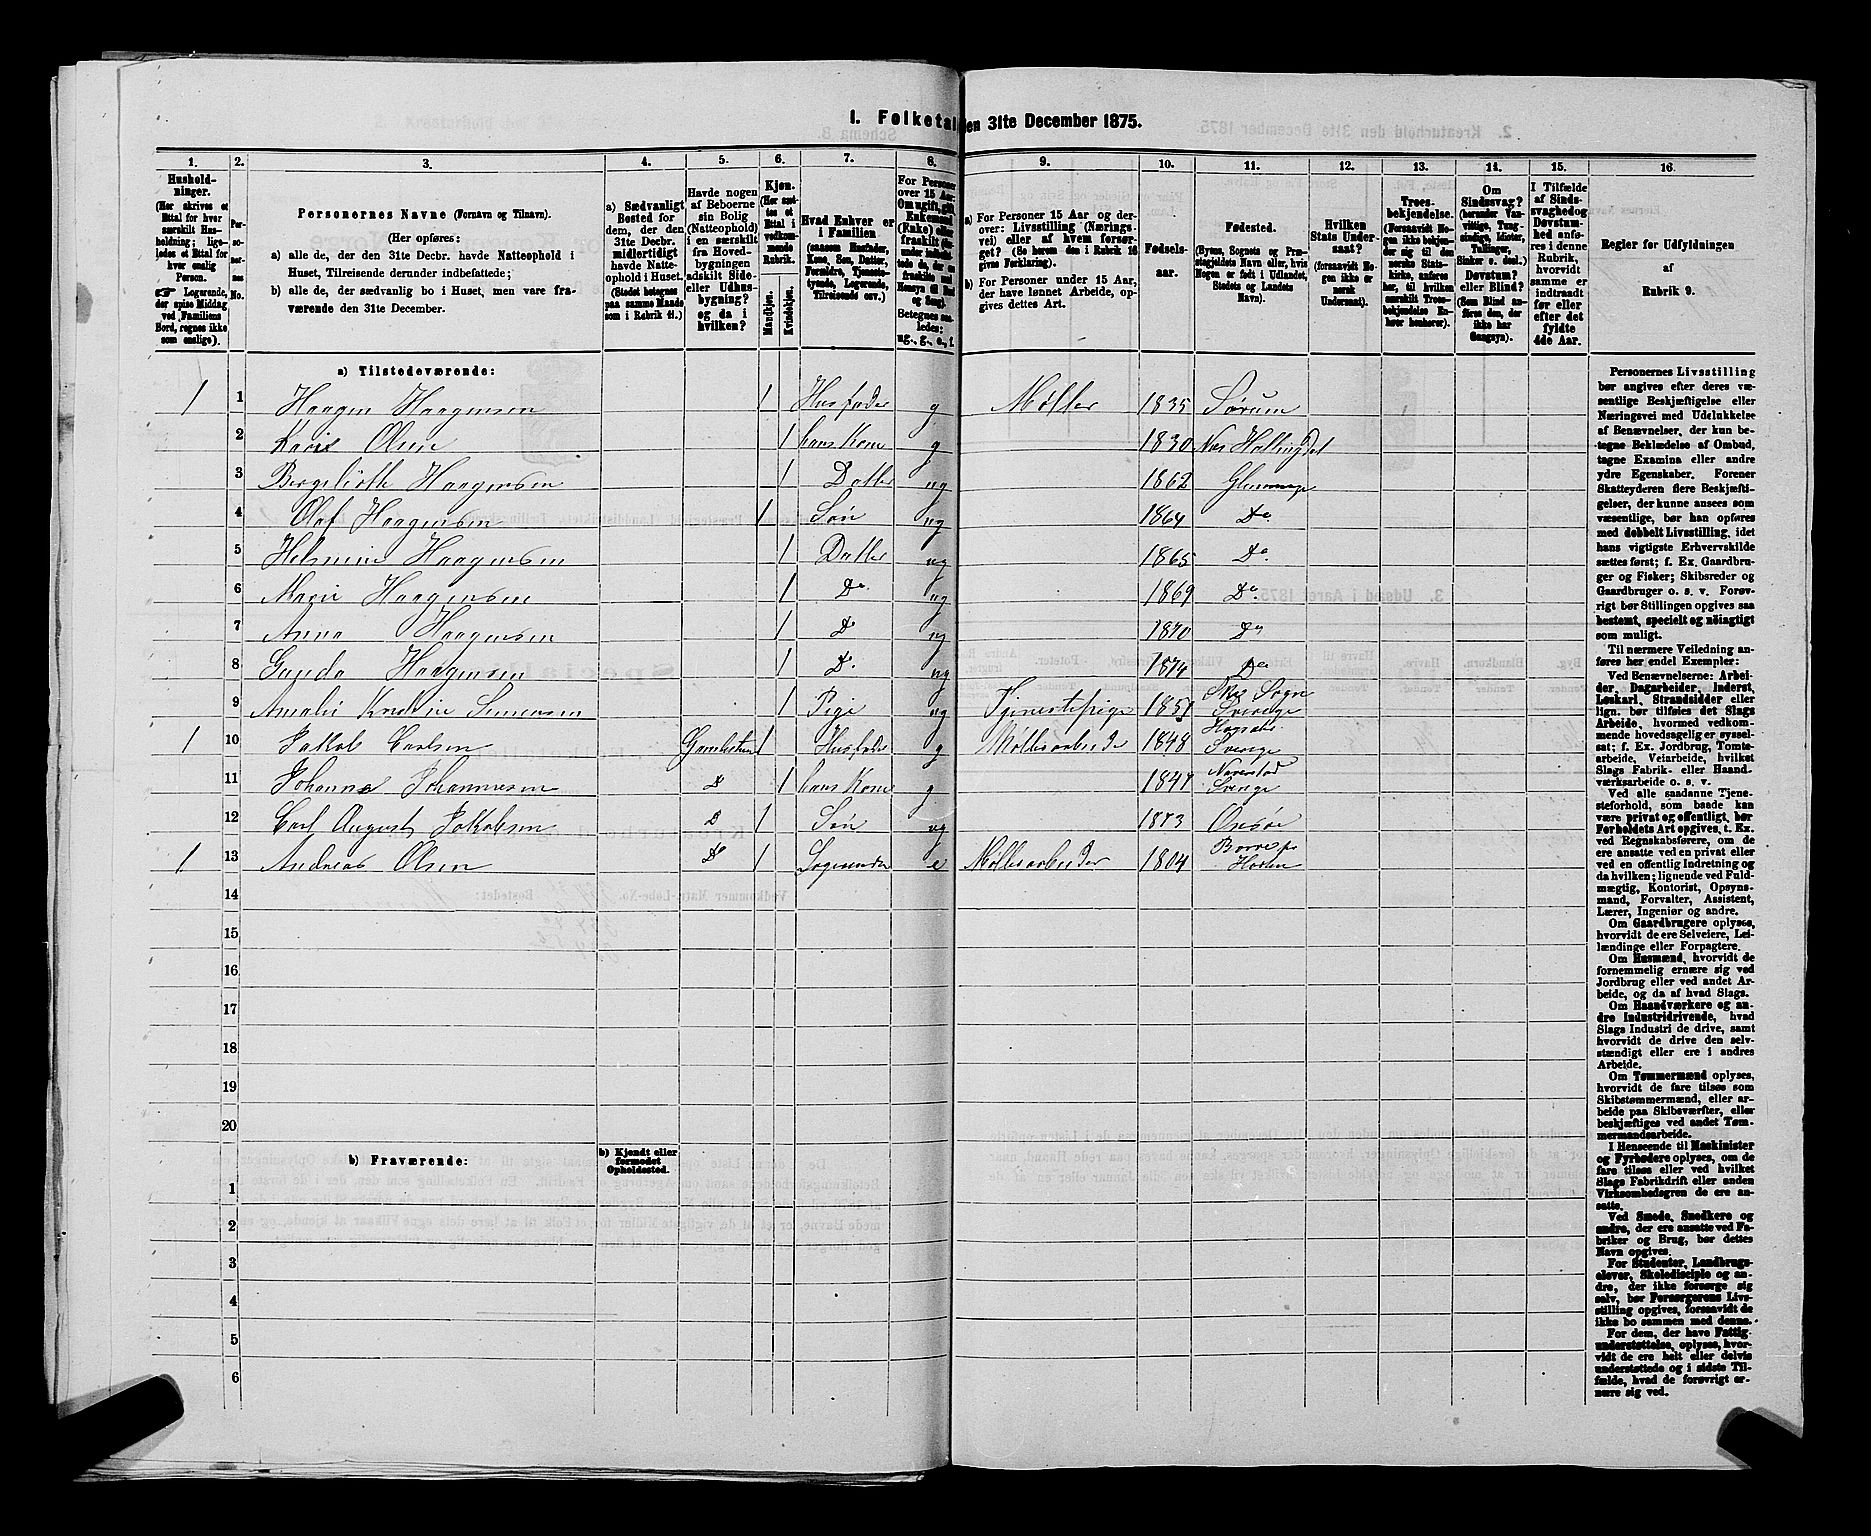 1. Folketal den 31te December 1875.
1.
2.
3.
4.
5.
6.
7.
8.
9.
10.
11.
12.
13.
14.
15.
16.
Personernes Navne (Fornavn og Tilnavn).
(Her opføres:
a) alle de, der den 31te Decbr. havde Natteophold i
Huset, Tilreisende derunder indbefattede;
b) alle de, der sædvanlig bo i Huset, men vare fra-
værende den 31te December.
a) Sædvanligt
Bosted for
dem, der den
31te Decbr.
midlertidigt
havde Natte-
ophold i Huset.
(Stedet betegnes
paa samme Maade
som i Rubrik 11.)
Havde nogen
af Beboerne
sin Bolig
(Natteophold)
i en særskilt
fra Hoved-
bygningen
adskilt Side-
eller Udhus-
bygning?
og da i
hvilken?
Kjøn.
Mandkjøn.
Kvindekjøn.
Hvad Enhver er
i Familien
(saasom Husfader,
Kone, Søn, Datter,
Forældre, Tjeneste-
tyende, Logerende,
Tilreisende osv.)
a) For Personer 15 Aar og der-
over: Livsstilling (Nærings-
vei) eller af hvem forsør-
get? (Se herom den i Rubrik 16
givne Forklaring).
b) For Personer under 15 Aar,
der have lønnet Arbeide, op-
gives dettes Art.
Fødsels-
aar.
Fødested.
(Byens, Sognets og Præ-
stegjeldets Navn eller, hvis
Nogen er født i Udlandet,
Stedets og Landets
Navn).
Hvilken
Stats Under-
saat?
(forsaavidt No-
gen ikke er
norsk
Undersaat).
Troes-
bekjendelse.
Om
Sindssvag?
Døvstum?
eller Blind?
I Tilfælde
af Sinds-
svaghed og
Døvstum-
hed anfø-
res i denne
Rubrik,
hvorvidt
samme er
indtraadt
før eller
efter det
fyldte
4de Aar.
Regler for Udfyldningen
af
Rubrik 9.
a) Tilstedeværende:
1 1 Haagen Haagensen 1 Husfader g Møller 1835 Sørum
2 Kari Olsen 1 hans Kone g 1830 Nes Hallingdal
3 Bergelioth Haagensen 1 Datter ug 1862 Glemminge
4 Olaf Haagensen 1 Søn ug 1864 Do
5 Helmine Haagensen 1 Datter ug 1865 Do
6 Marie Haagensen 1 Do ug 1869 Do
7 Anna Haagensen 1 Do ug 1870 Do
8 Gunda Haagensen 1 Do ug 1874 Do
9 Amalie Kristine Simensen 1 Pige ug Tjenestepige 1851 Skee Sogn
Sverige
1 10 Jakob Carlsen 1 Husfader g Møllearbeider 1848
Sverige
11 Johanne Johannesen Do 1 hans Kone g 1847 Naverstad
Sverige
12 Carl August Jakobsen D 1 Søn ug 1873 Onsøe
1 13 Andreas Olsen Do 1 Logerende e Møllearbeider 1804
14
15
16
17
18
19
20
b) Fraværende:
b) Kjendt eller
formodet
Opholdssted.
1
2
3
4
5
6
Personernes Livsstilling
bør angives efter deres væ-
sentlige Beskjæftigelse eller
Næringsvei med Udelukkelse
af Benævnelser, der kun be-
tegne Beklædelse af Ombud,
tagne Examina eller andre
ydre Egenskaber. Forener
Skatteyderen flere Beskjæfti-
gelser, der kunne ansees som
væsentlige, bør han opføres
med dobbelt Livsstilling, idet
hans vigtigste Erhvervskilde
sættes først; f. Ex. Gaardbru-
ger og Fisker; Skibsreder og
Gaardbruger o. s. v. Forøv-
rigt bør Stillingen opgives saa
bestemt, specielt og nøiagtigt
som muligt.
Til nærmere Veiledning an-
føres her endel Exempler:
Ved Benævnelserne: Arbei-
der, Dagarbeider, Inderst,
Løskarl, Strandsidder eller
lign. bør tilføies det Slags
Arbeide, hvormed vedkom-
mende hovedsagelig er syssel-
sat; f. Ex. Jordbrug, Tomte-
arbeide, Veiarbeide, hvilket
Slags Fabrik- eller Haand-
værksarbeide o. s. v.
Ved alle saadanne Tjene-
steforhold, som baade kan
være privat og offentligt, bør
Forholdets Art opgives, t. Ex.
ved Regnskabsførere, om de
ere ansatte ved en privat eller
ved en offentlig Indretning og
da hvilken; lignende ved Fuld-
mægtig, Kontorist, Opsyns-
mand, Forvalter, Assistent,
Lærer, Ingeniør og andre.
Om Gaardbrugere oplyses,
hvorvidt de ere Selveiere, Lei-
lændinge eller Forpagtere.
Om Husmænd, hvorvidt de
fornemmelig ernære sig ved
Jordbrug eller ved andet Ar-
beide, og da af hvad Slags.
Om Haandværkere og an-
dre Industridrivende, hvad
Slags Industri de drive, samt
hvorvidt de drive den selv-
stændigt eller ere i andres
Arbeide.
Om Tømmermænd oplyses,
hvorvidt de fare tilsøs som
Skibstømmermænd, eller ar-
beide paa Skibsværfter, eller
beskjæftiges ved andet Tøm-
mermandsarbeide.
I Henseende til Maskinister
og Fyrbødere oplyses, om de
fare tilsøs eller ved hvilket
Slags Fabrikdrift eller anden
Virksomhedsgren de ere an-
satte.
Ved Smede, Snedkere og
andre, der ere ansatte ved Fa-
briker og Brug, bør dettes
Navn opgives.
For Studenter, Landbrugs-
elever, Skoledisciple og an-
dre, der ikke forsørge sig
selv, bør Forsørgerens Livs-
stilling opgives, forsaavidt de
ikke bo sammen med denne.
For dem, der have Fattig-
understøttelse, oplyses, hvor-
vidt de ere helt eller delvis
understøttede og i sidste Til-
fælde, hvad de forøvrigt er-
nære sig ved.